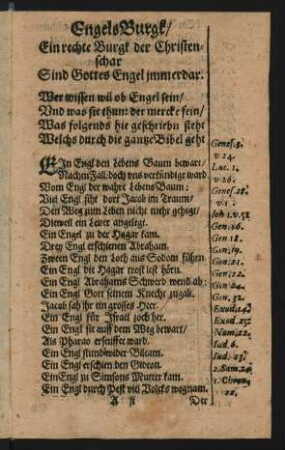 EngelsBurgk/
Ein rechte Burgk der Christen-
schar
Sind Gottes Engel jmmerdar.
Wer wissen wil ob Engel sein/
Und was sie thun: der mercke fein/
Was folgends hie geschriebn steht
Welchs durch die gantze Bibel geht
EJn Engl den Lebens Baum bewart/ Genes.3.
v 24.
Nachm Fall: doch uns verkündigt ward Luc. 1.
Vom Engl der wahre LebensBaum: v 26.
Viel Engl siht dort Jacob im Traum/ Genes.28.
Den Weg zum Leben nicht mehr gehegt/ v.1
Dieweil ein Leiter angelegt. Joh 1.v.51
Ein Engl zu der Hagar kam. Gen.16.
Drey Engl erschienen Abraham. Gen 18.
Zween Engl den Loth aus Sodom führn Gen.19.
Ein Engl die Hagar trost ließ hörn. Gen.21.
Ein Engl Abrahams Schwerd wend ab: Gen.22.
Ein Engl Gott seinem Knecht zugab. Gen.24
Jacob sah jhr ein grosses Heer. Gen.32.
Ein Engl für Israel zoch her. Exod.14.
Ein Engl sie auff dem Weg bewart/ Exod.23.
Als Pharao erseufft ward. Num.22.
Ein Engl Bileam. Iud.6.
Ein Engl erschien den Gideon. Iud.13.
EinEngl zu Simsons Mutter kam. 2.Sam.24.
Ein Engl durch Pest vil Volcks wegnam. 1.Chron.
22.
A Der